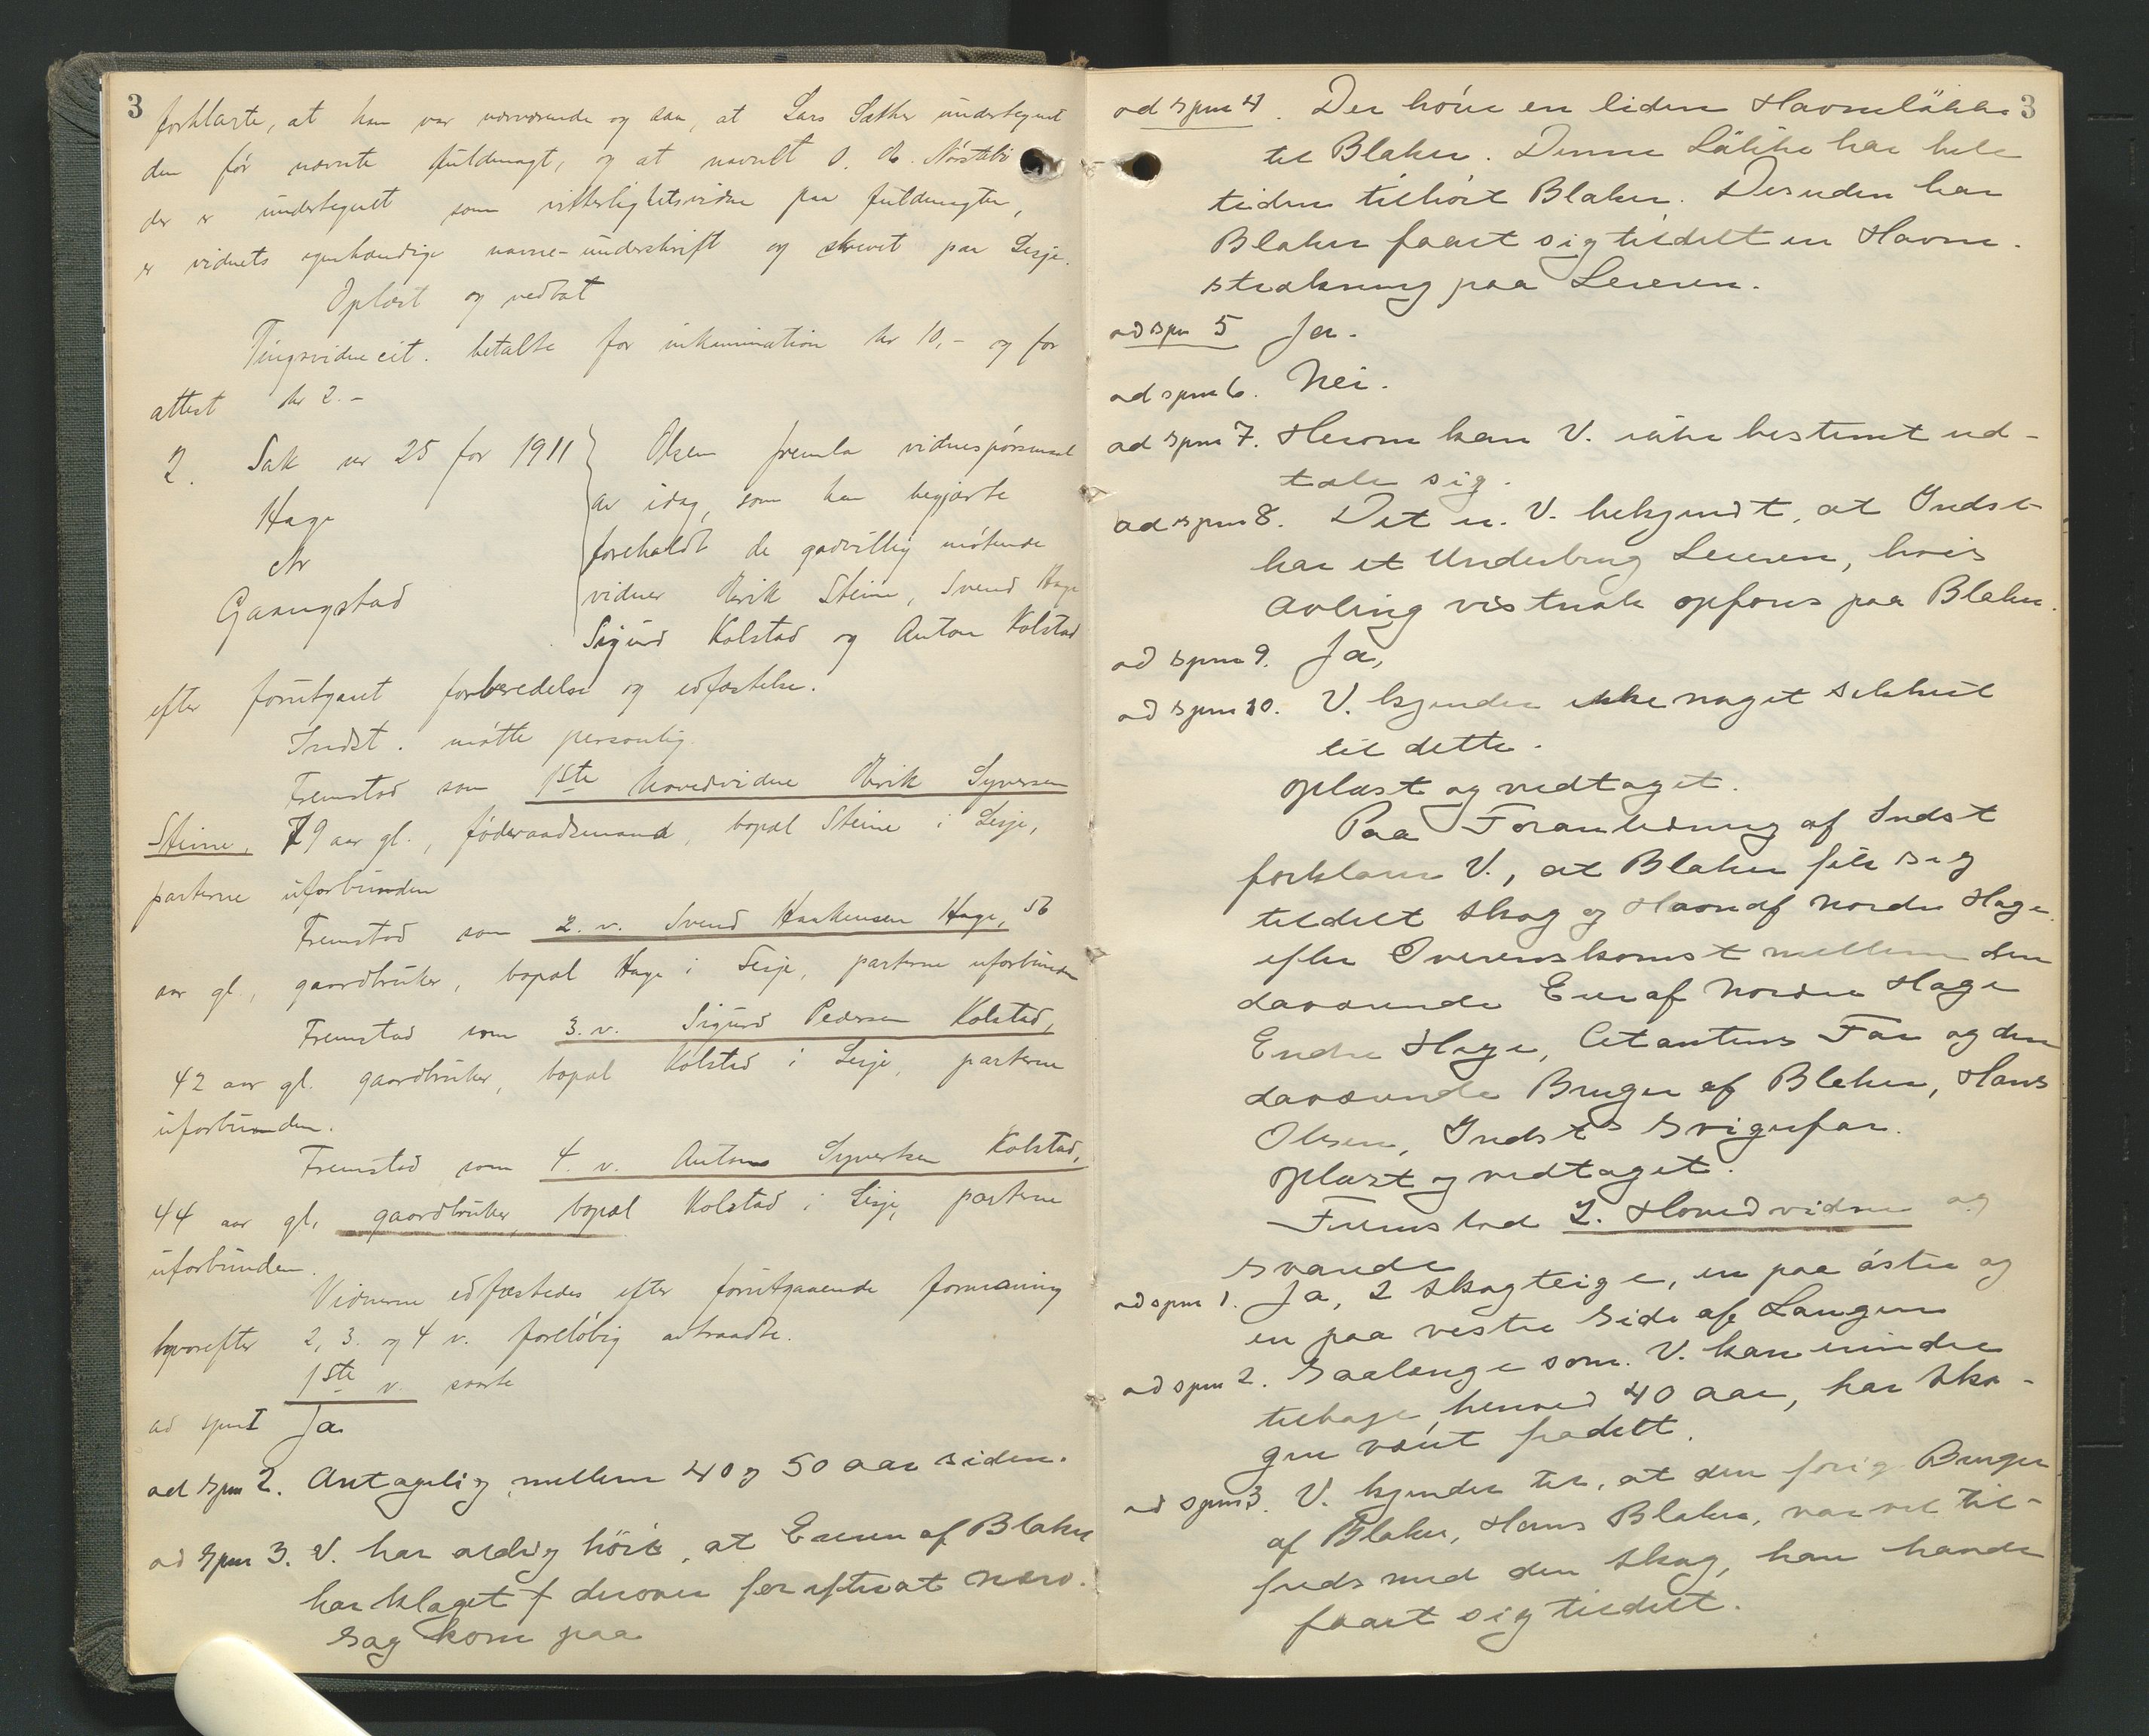 3
forklarte, at han var nærværende og saa, at Lars Sæther undertegnet
den før nævnte fuldmagt, og at navnet O. Nørstebø
der er undertegnet som vitterlighetsvidne paa fuldmagten,
er vidnets egenhændige navne-underskrift og skrevet paa Lesje.
Oplæst og vedtat
Tingsvidne cit. betalte for inkamination kr 10,- og for
attest kr 2.-
2. Sak nr 25 for 1911
Hage
Gaangstad
Olsen fremla vidnespørsmaal
av idag, som han begjærte
foreholdt de godvillig møtende
vidner Erik Steine, Svend Hage
Sigurd Kolstad og Anton Kolstad
efter forutgaaet forberedelse og edfæstelse.
Indst. møtte personlig.
Fremstod som 1ste hovedvidne Erik Syversen
Steine, 79 aar gl., føderaadsmand, bopæl Steine i Lesje,
parterne uforbunden
Fremstod som 2. v. Svend Haakensen Hage, 56
aar gl., gaardbruker, bopæl Hage i Lesje, parterne uforbunden
Fremstod som 3. v. Sigurd Pedersen Kolstad,
42 aar gl. gaardbruker, bopæl Kolstad i Lesje, parterne
uforbunden.
Fremstod som 4. v. Anton Syvertsen Kolstad,
44 aar gl, gaardbruker, bopæl Kolstad i Lesje, parterne
uforbunden.
Vidnerne edfæstedes efter forutgaaende formaning
hvorefter 2, 3. og 4 v. foreløbig attraadte.
1ste v. svarte
ad spm I Ja
ad spm 2. Antagelig mellem 40 og 50 aar siden.
ad spm 3. V. har aldrig hørt, at Eieren af Blaker
har klaget derover før efterat nærv.
Sag kom paa
3
ad spm 4. Der hører en liden Havneløkke
til Blaker. Denne Løkke har hele
tiden tilhørt Blaker. Desuden har
Blaker faaet sig tildelt en Havne-
strækning paa Leieren.
ad spm 5 Ja.
ad spm 6. Nei.
ad spm 7. Herom kan V. ikke bestemt ud-
tale sig.
ad spm 8. Det er V. bekjendt, at Indst
har et Underbrug Leieren, hvis
Avling vistnok opfores paa Blaker.
ad spm 9. Ja,
ad spm 10. V. kjender ikke noget sikkert
til dette.
oplæst og vedtaget.
Paa Foranledning af Indst
forklarer V., at Blaker fik sig
tildelt Skog og Havn af Nordre Hage
efter Overenskomst mellem den
daværende Eier af Nordre Hage
Endre Hage, Citantens Far og den
daværende Bruger af Blaker, Hans
Olsen, Indst's Svigerfar.
oplæst og vedtaget.
Fremstod 2. Hovedvidne og
svarede
ad spm 1. Ja, 2 Skogteige, en paa østre og
en paa vestre Side af Laagen
ad spm 2. Saalænge som V. kan mindre
tilbage, henved 40 aar, har Sko-
gen været fradelt.
ad spm 3. V. kjender til, at den forig Bruger
af Blaker, Hans Blaker, var vel til-
freds med den Skog, han havde
faaet sig tildelt.